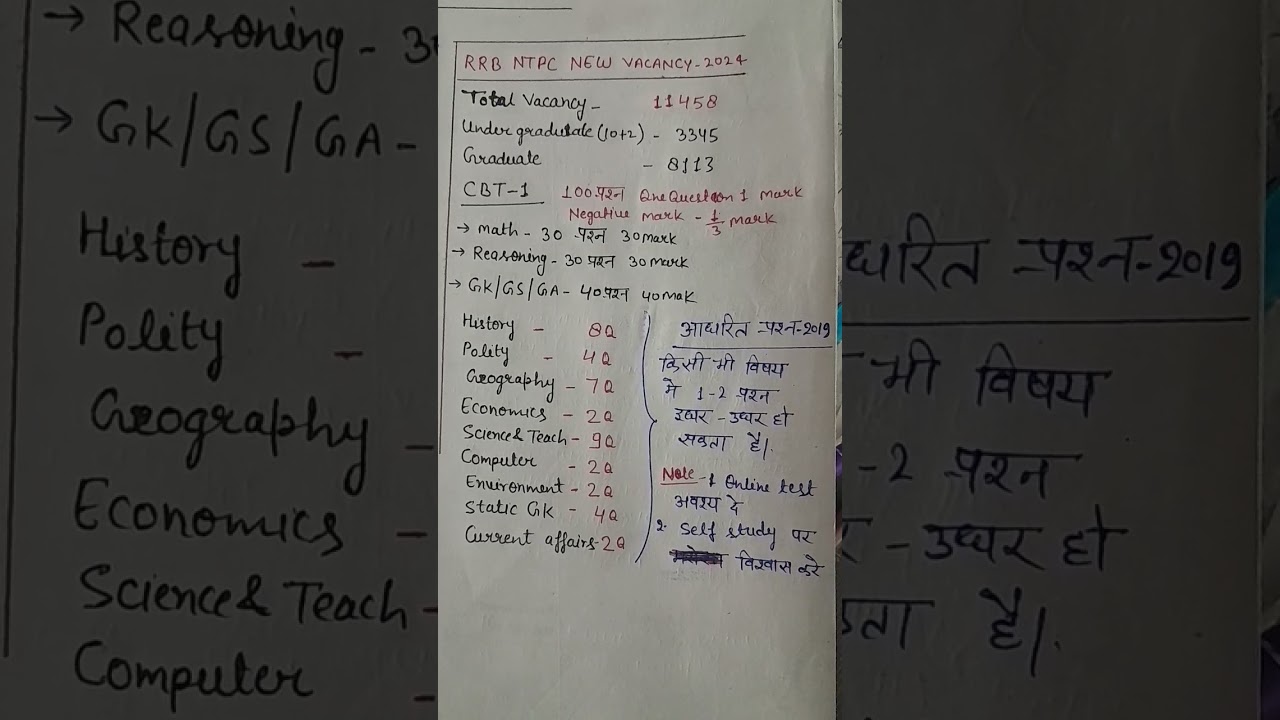 RRB NTPC NEW VACANCY-2024
Total Vacancy - 11458
Under gradutate (10+2) - 3345
Graduate - 8113
CBT-1 100 प्रश्न One Question 1 mark
Negative mark - 1/3 mark
→ math - 30 प्रश्न 30 mark
→ Reasoning - 30 प्रश्न 30 mark
→ GK/GS/GA - 40 प्रश्न 40 mak
History - 8Q
Polity - 4Q
Geography - 7Q
Economics - 2Q
Science & Teach - 9Q
Computer - 2Q
Environment - 2Q
Static GK - 4Q
Current affairs - 2Q
आधारित प्रश्न-2019
किसी भी विषय
मे 1-2 प्रश्न
उधर-उधर हो
सकता है।
Note - 1 Online test
अवश्य दे
2. Self study पर
विश्वास करे
→ Reasoning - 30
→ GK/GS/GA -
History -
Polity -
Geography -
Economics -
Science & Teach -
Computer -
धारित प्रश्न-2019
भी विषय
-2 प्रश्न
र - उधर हो
कता है।